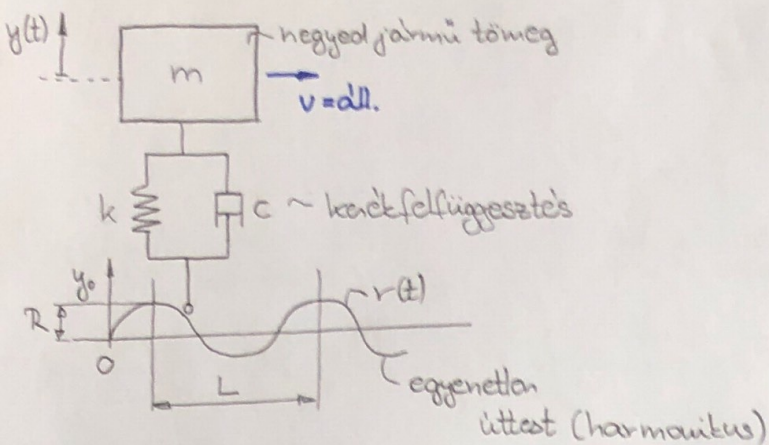 y(t)
negyed jármű tömeg
m
v=áll.
k
c ~ kerékfelfüggesztés
y₀
r(t)
R
0
L
egyenetlen
úttest (harmonikus)